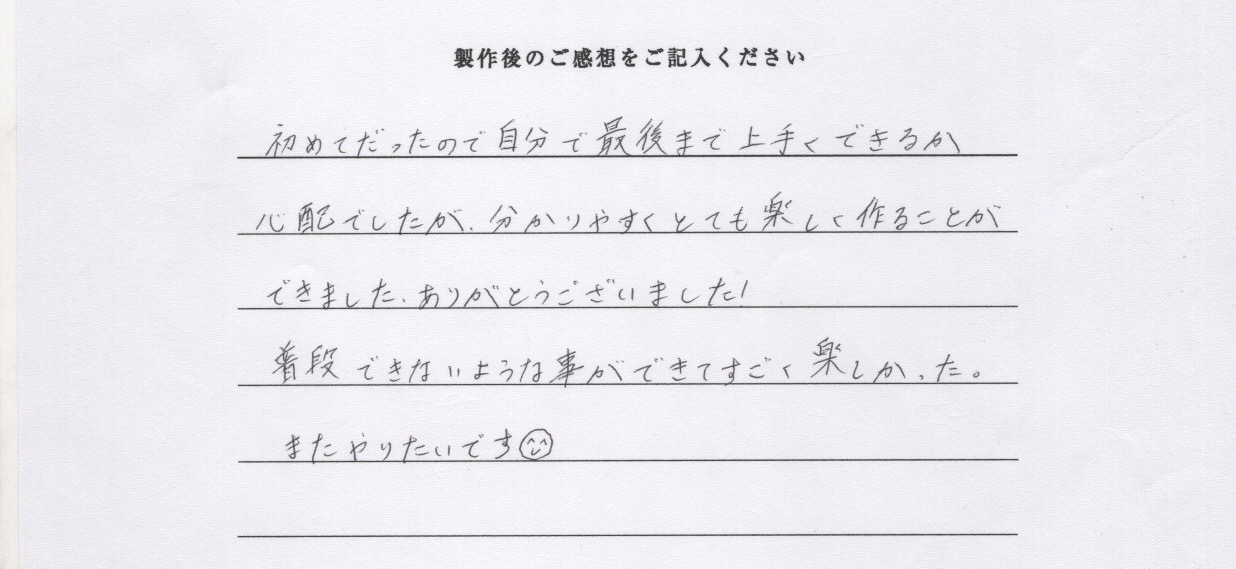 製作後のご感想をご記入ください
初めてだったので自分で最後まで上手くできるか
心配でしたが、分かりやすくとても楽しく作ることが
できました、ありがとうございました!
普段できないような事ができてすごく楽しかった。
またやりたいです